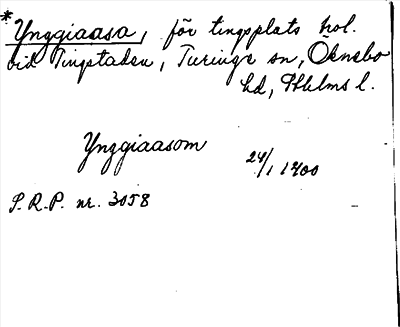 *Ynggiaasa, för tingsplats trol.
vid Tingstaden, Turinge sn, Öknebo
hd, Sthlms l.
Ynggiaasom 24/1 1400
S.R.P. nr. 3058